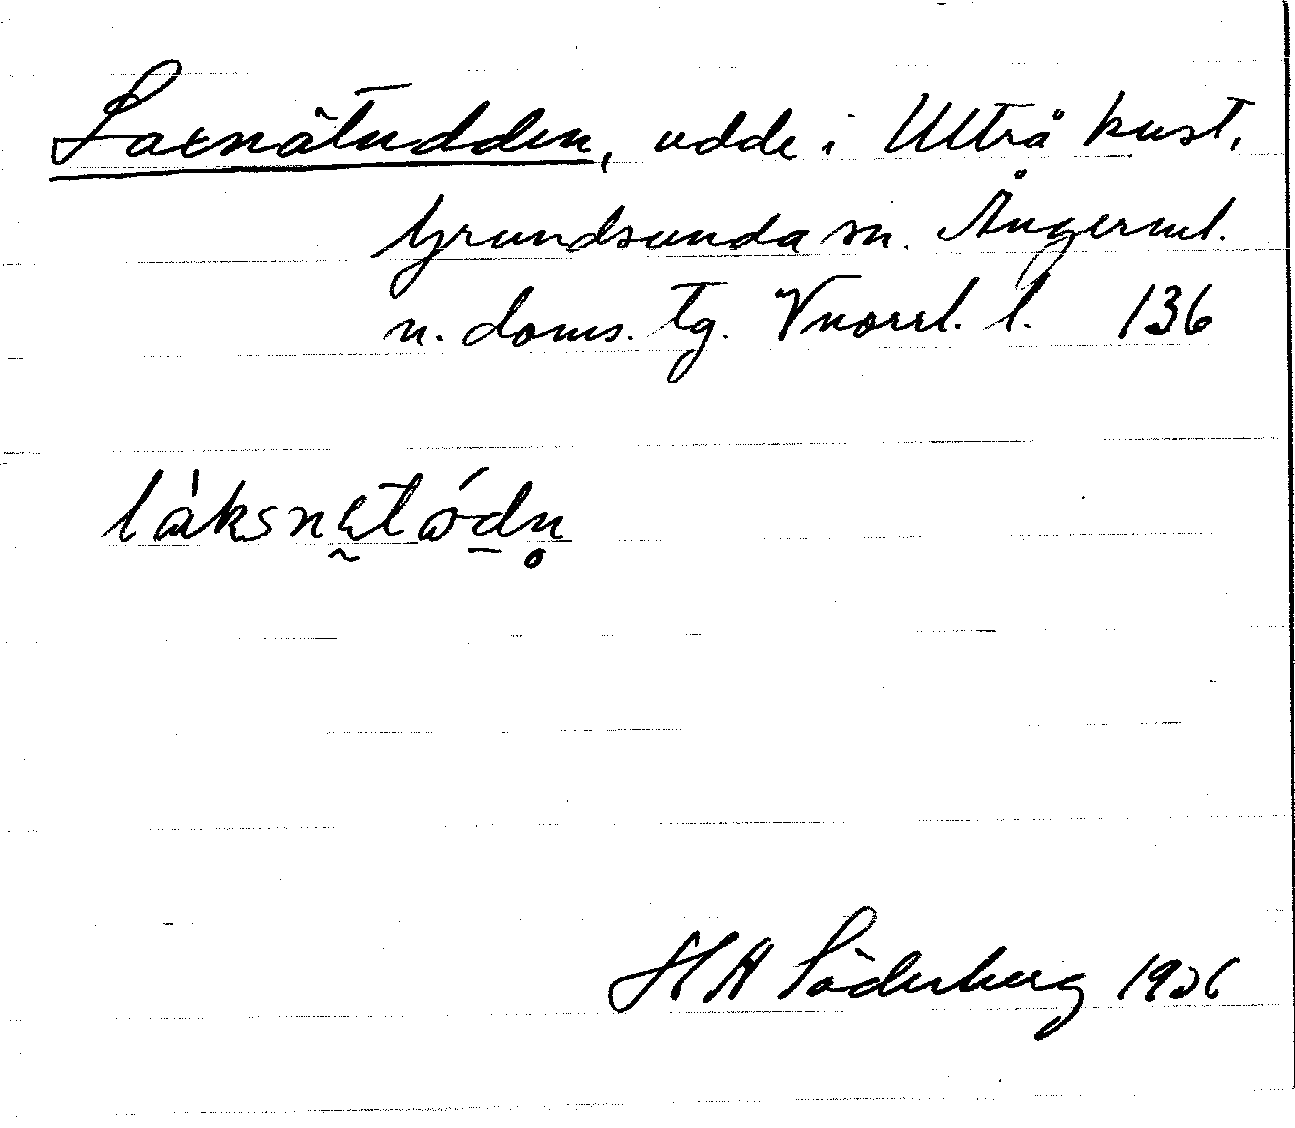 Laxnätudden, udde i Ultrå kust,
Grundsunda sn. Ångerml.
n. doms. tg. Vnorrl. l. 136
làksnɛ̰tódn̥
H A Söderberg 1936